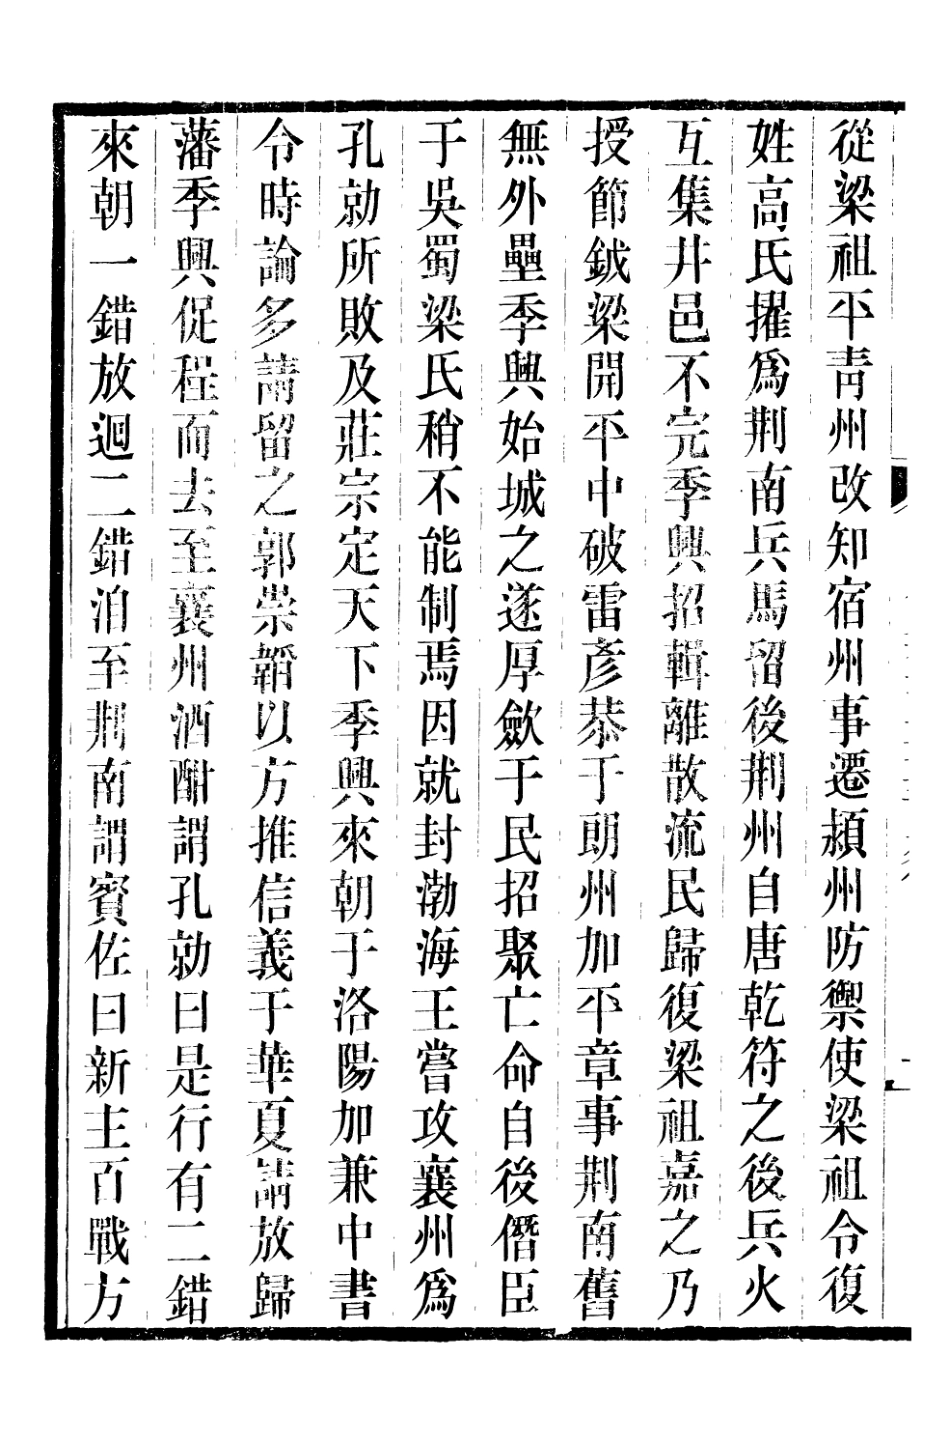 從梁祖平靑州改知宿州事遷潁州防禦使梁祖令復
姓高氏擢爲荆南兵馬留後荆州自唐乾符之後兵火
互集井邑不完季興招輯離散流民歸復梁祖嘉之乃
授節鉞梁開平中破雷彥恭于朗州加平章事荆南舊
無外壘季興始城之遂厚歛于民招聚亡命自後僭臣
于吳蜀梁氏稍不能制焉因就封渤海王嘗攻襄州爲
孔勍所敗及莊宗定天下季興來朝于洛陽加兼中書
令時論多請留之郭崇韜以方推信義于華夏請放歸
藩季興促程而去至襄州酒酣謂孔勍曰是行有二錯
來朝一錯放迴二錯洎至荆南謂賓佐曰新主百戰方